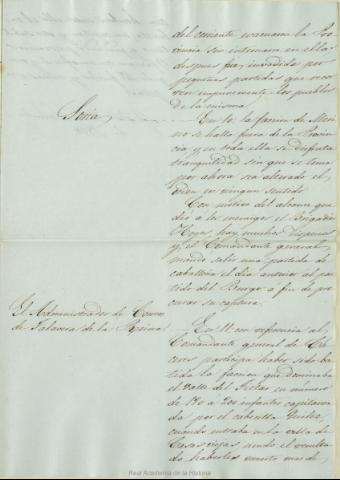 del corriente evacuaron la Pro-
vincia sin internarse en ella;
despues fue invadida por
pequeñas partidas que recor-
ren impunemente los pueblos
de la misma.
Soria
En 16 la faccion de Meri-
no se halla fuera de la Provin-
cia y en toda ella se disfruta
tranquilidad sin que se tema
por ahora sea alterado el
orden en ningun sentido
Con motivo del alcance que
dió á los enemigos el Brigadier
Hoyos, hay muchos dispersos
y el Comandante general
mandó salir una partida de
caballeria el dia anterior al par-
tido del Burgo á fin de pro-
curar su captura.
El Administrador de Correos
de Talavera de la Reina
En 11 con referencia al
Comandante general de Cá-
ceres participa haber sido ba-
tida la faccion que dominaba
el valle del Tietar en número
de 150 á 200 infantes capitanea-
da por el cabecilla
cuando entraba en la villa de
Casas viejas, siendo el resulta-
do haberles muerto mas de
Real Academia de la Historia